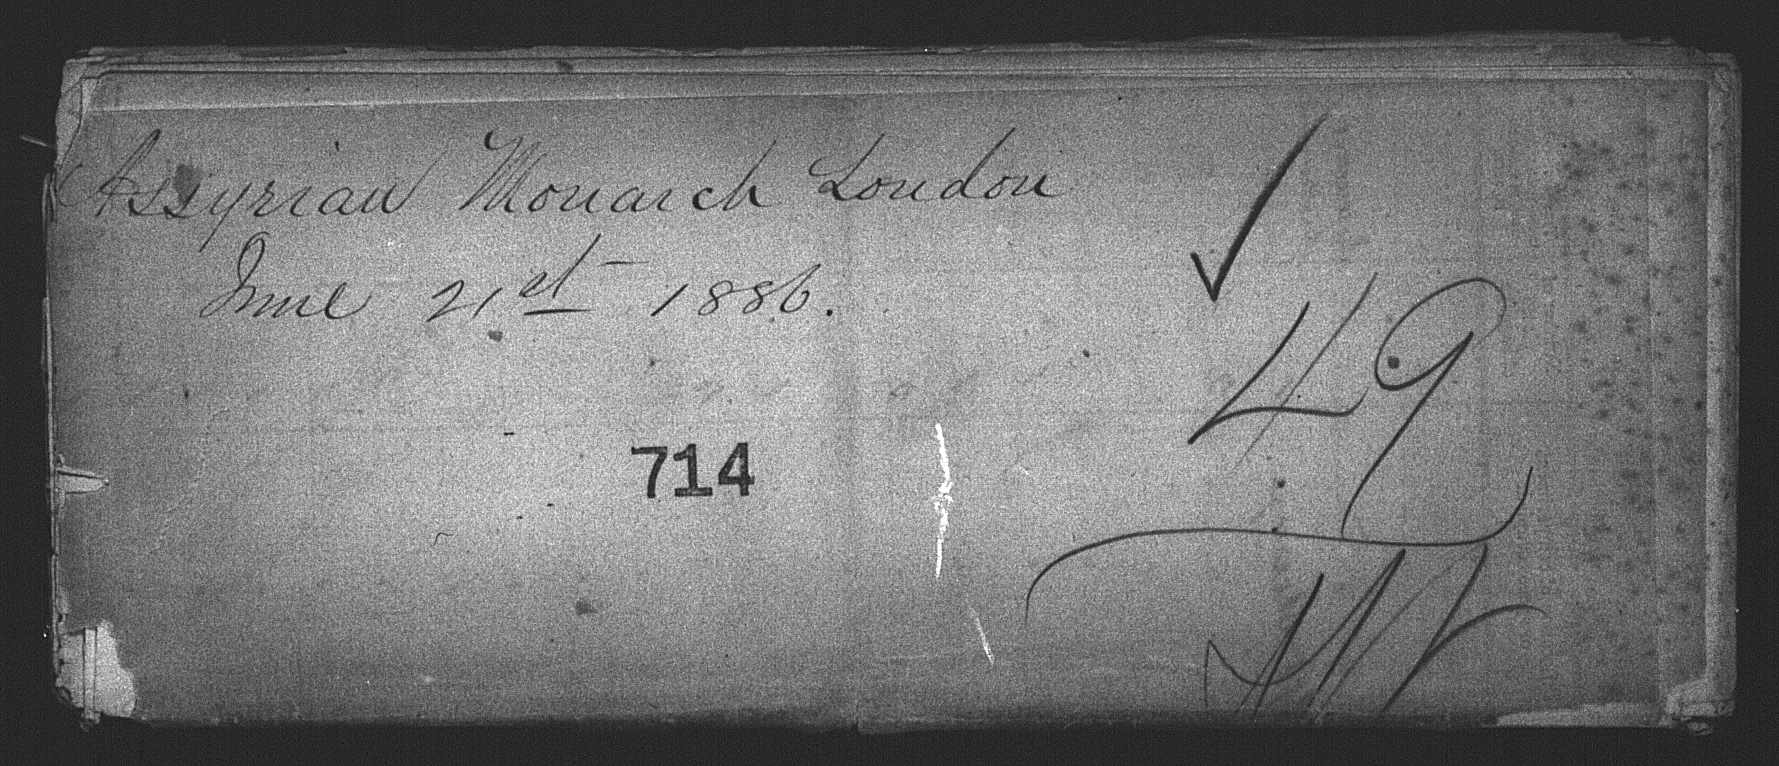 Assyrian Monarch London
June 21st 1886.
49
714